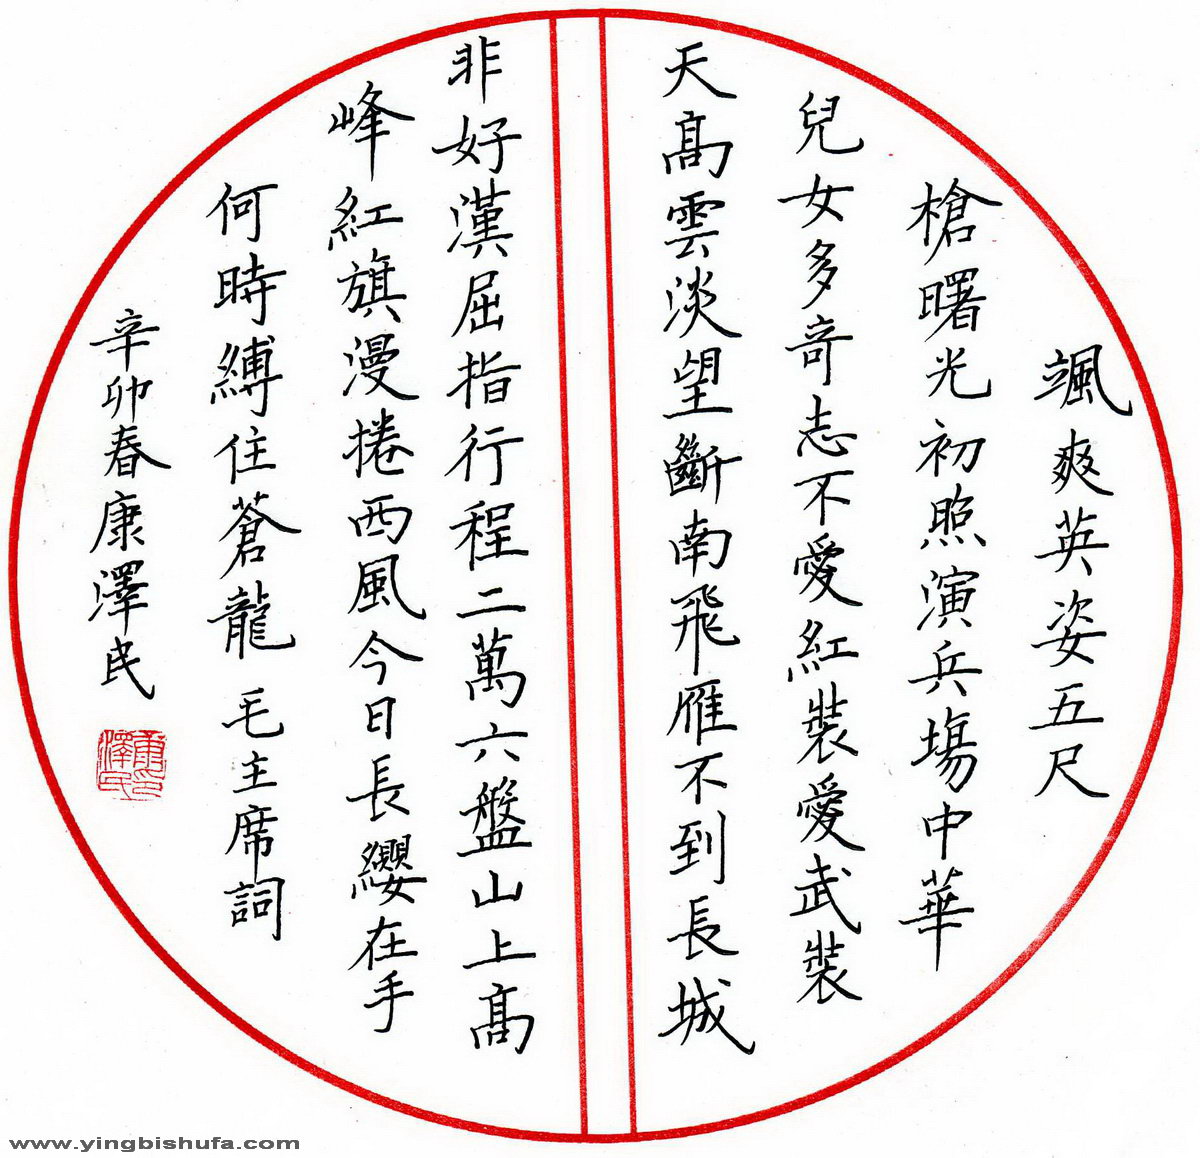 颯爽英姿五尺
槍曙光初照演兵場中華
兒女多奇志不愛紅裝愛武裝
天高雲淡望斷南飛雁不到長城
非好漢屈指行程二萬六盤山上高
峰紅旗漫捲西風今日長纓在手
何時縛住蒼龍 毛主席詞
辛卯春康澤民
康澤民印
www.yingbishufa.com